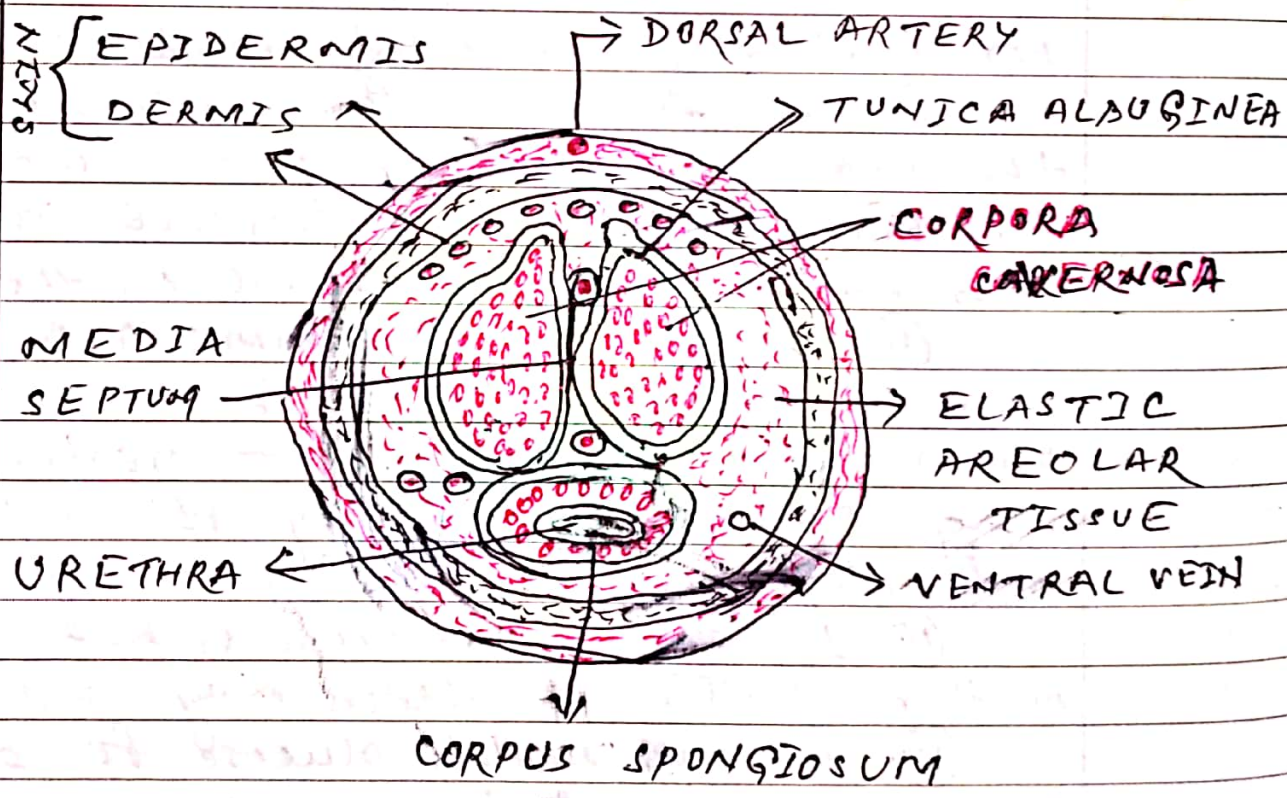 SKIN
EPIDERMIS
DERMIS
DORSAL ARTERY
TUNICA ALBUGINEA
CORPORA
CAVERNOSA
MEDIA
SEPTUM
ELASTIC
AREOLAR
TISSUE
URETHRA
VENTRAL VEIN
CORPUS SPONGIOSUM